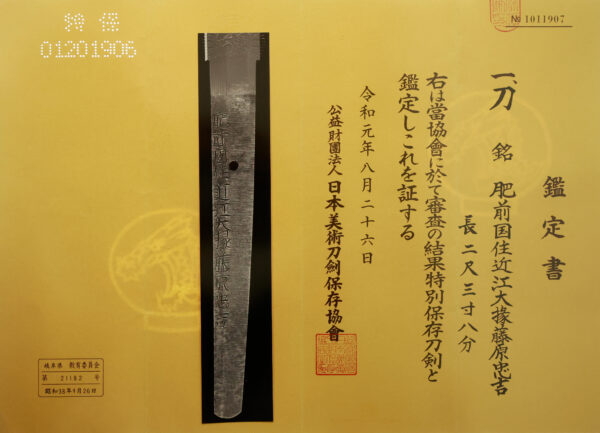 № 1011907
鑑定書
一、刀 銘 肥前国住近江大掾藤原忠吉
長二尺三寸八分
右は當協會に於て審査の結果特別保存刀剣と
鑑定しこれを証する
令和元年八月二十六日
公益財團法人日本美術刀劍保存協會
肥前国住近江大掾藤原忠吉
特保
01201906
岐阜県 教育委員会
第 21182 号
昭和38年1月26日